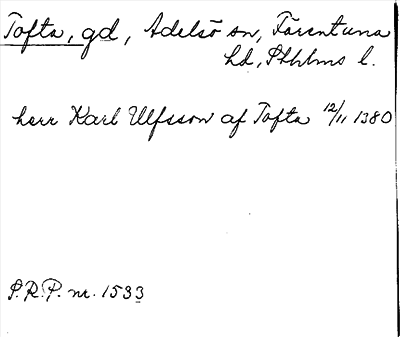 Tofta, gd, Adelsö sn, Färentuna
hd, Sthlms l.
herr Karl Ulfsson af Tofta 12/11 1380
S.R.P. nr. 1533